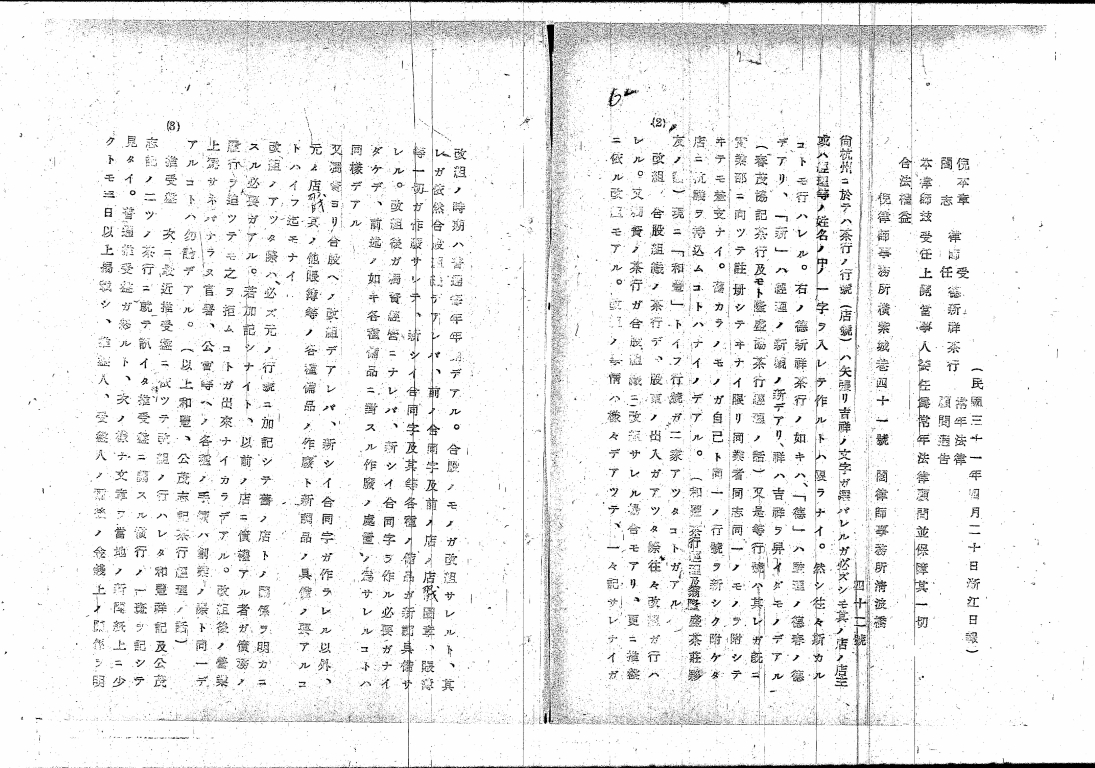 (民國三十一年四月二十日浙江日報)
倪本章 律師 受 德新祥茶行 常年法律
閻志 任 顧問通告
本律師玆受任上開當事人委任爲常年法律顧問並保障其一切
合法權益
倪律師事務所橫紫城巷四十一號 閻律師事務所清波橋
四十二號
尙杭州ニ於テハ茶行ノ行號(店號)ハ矢張リ吉祥ノ文字ガ選バレルガ必ズシモ其ノ店ノ店主
或ハ經理等ノ姓名ノ中ノ一字ヲ入レテ作ルトハ限ラナイ。然シ往々斯カル
コトモ行ハレル。右ノ德新祥茶行ノ如キハ、「德」ハ經理ノ德春ノ德
デアリ、「新」ハ經理ノ新號ノ新デアリ、祥ハ吉祥ヲ昇イダモノデアル
(春茂協記茶行及モト隆盛協茶行經理ノ話)又是等行號ハ其レガ既ニ
實業部ニ向ツテ註册シテヰナイ限リ同業者同志同一ノモノヲ附シテ
ヰテモ差支ナイ。舊カラノモノガ自己ト同一ノ行號ヲ新シク附ケタ
店ニ抗議ヲ持込ムコトハナイノデアル。(和豐茶行經理及翁隆盛茶莊夥
友ノ話)現ニ「和豐」トイフ行號ガ二家アツタコトガアル
(2)
改組 合股組織ノ茶行デ、股東ノ出入ガアツタ際往々改組ガ行ハ
レル。又獨資ノ茶行ガ合股組織ニ改組サレル場合モアリ、更ニ推盤
ニ依ル改組モアル。改組ノ事情ハ様々デアツテ、一々記サレナイガ
6
改組ノ時期ハ普通每年年頭デアル。合股ノモノガ改組サレルト、其
レガ依然合股組織ヲアレバ、前ノ合同字及前ノ店ノ店戳圖章、賬簿
等一切ガ作廢サレテ、新シイ合同字及其等各種ノ備品ガ新調具備サ
レル。改組後ガ獨資經營ニナレバ、新シイ合同字ヲ作ル必要ガナイ
ダケデ、前述ノ如キ各種備品ニ對スル作廢ノ處置ノ爲サレルコトハ
同樣デアル
又獨資ヨリ合股ヘノ改組デアレバ、新シイ合同字ガ作ラレル以外、
元ノ店戳其ノ他賬簿等ノ各種備品ノ作廢ト新調品ノ具備ノ要アルコ
トハイフ迄モナイ
改組ノアツタ際ハ必ズ元ノ行號ニ加記シテ舊ノ店トノ關係ヲ明カニ
スル必要ガアル。若加記シナイト、以前ノ店ニ債權アル者ガ債務ノ
履行ヲ迫ツテモ之ヲ拒ムコトガ出來ナイカラデアル。改組後ノ營業
上爲サネバナラヌ官署、公會等ヘノ各種ノ手續ハ創業ノ際ト同一デ
アルコトハ勿論デアル。(以上和豐、公茂志記茶行經理ノ話)
(3)
推受盤 次ニ最近推受盤ニ依ツテ改組ノ行ハレタ和豐祥記及公茂
志記ノ二ツノ茶行ニ就テ訊イタ推受盤ニ關スル慣行ノ一班ヲ記シテ
見タイ。普通推受盤ガ終ルト、次ノ樣ナ文章ヲ當地ノ新聞紙上ニ少
クトモ三日以上揭載シ、推盤人、受盤人ノ前後ノ金錢上ノ關係ヲ明